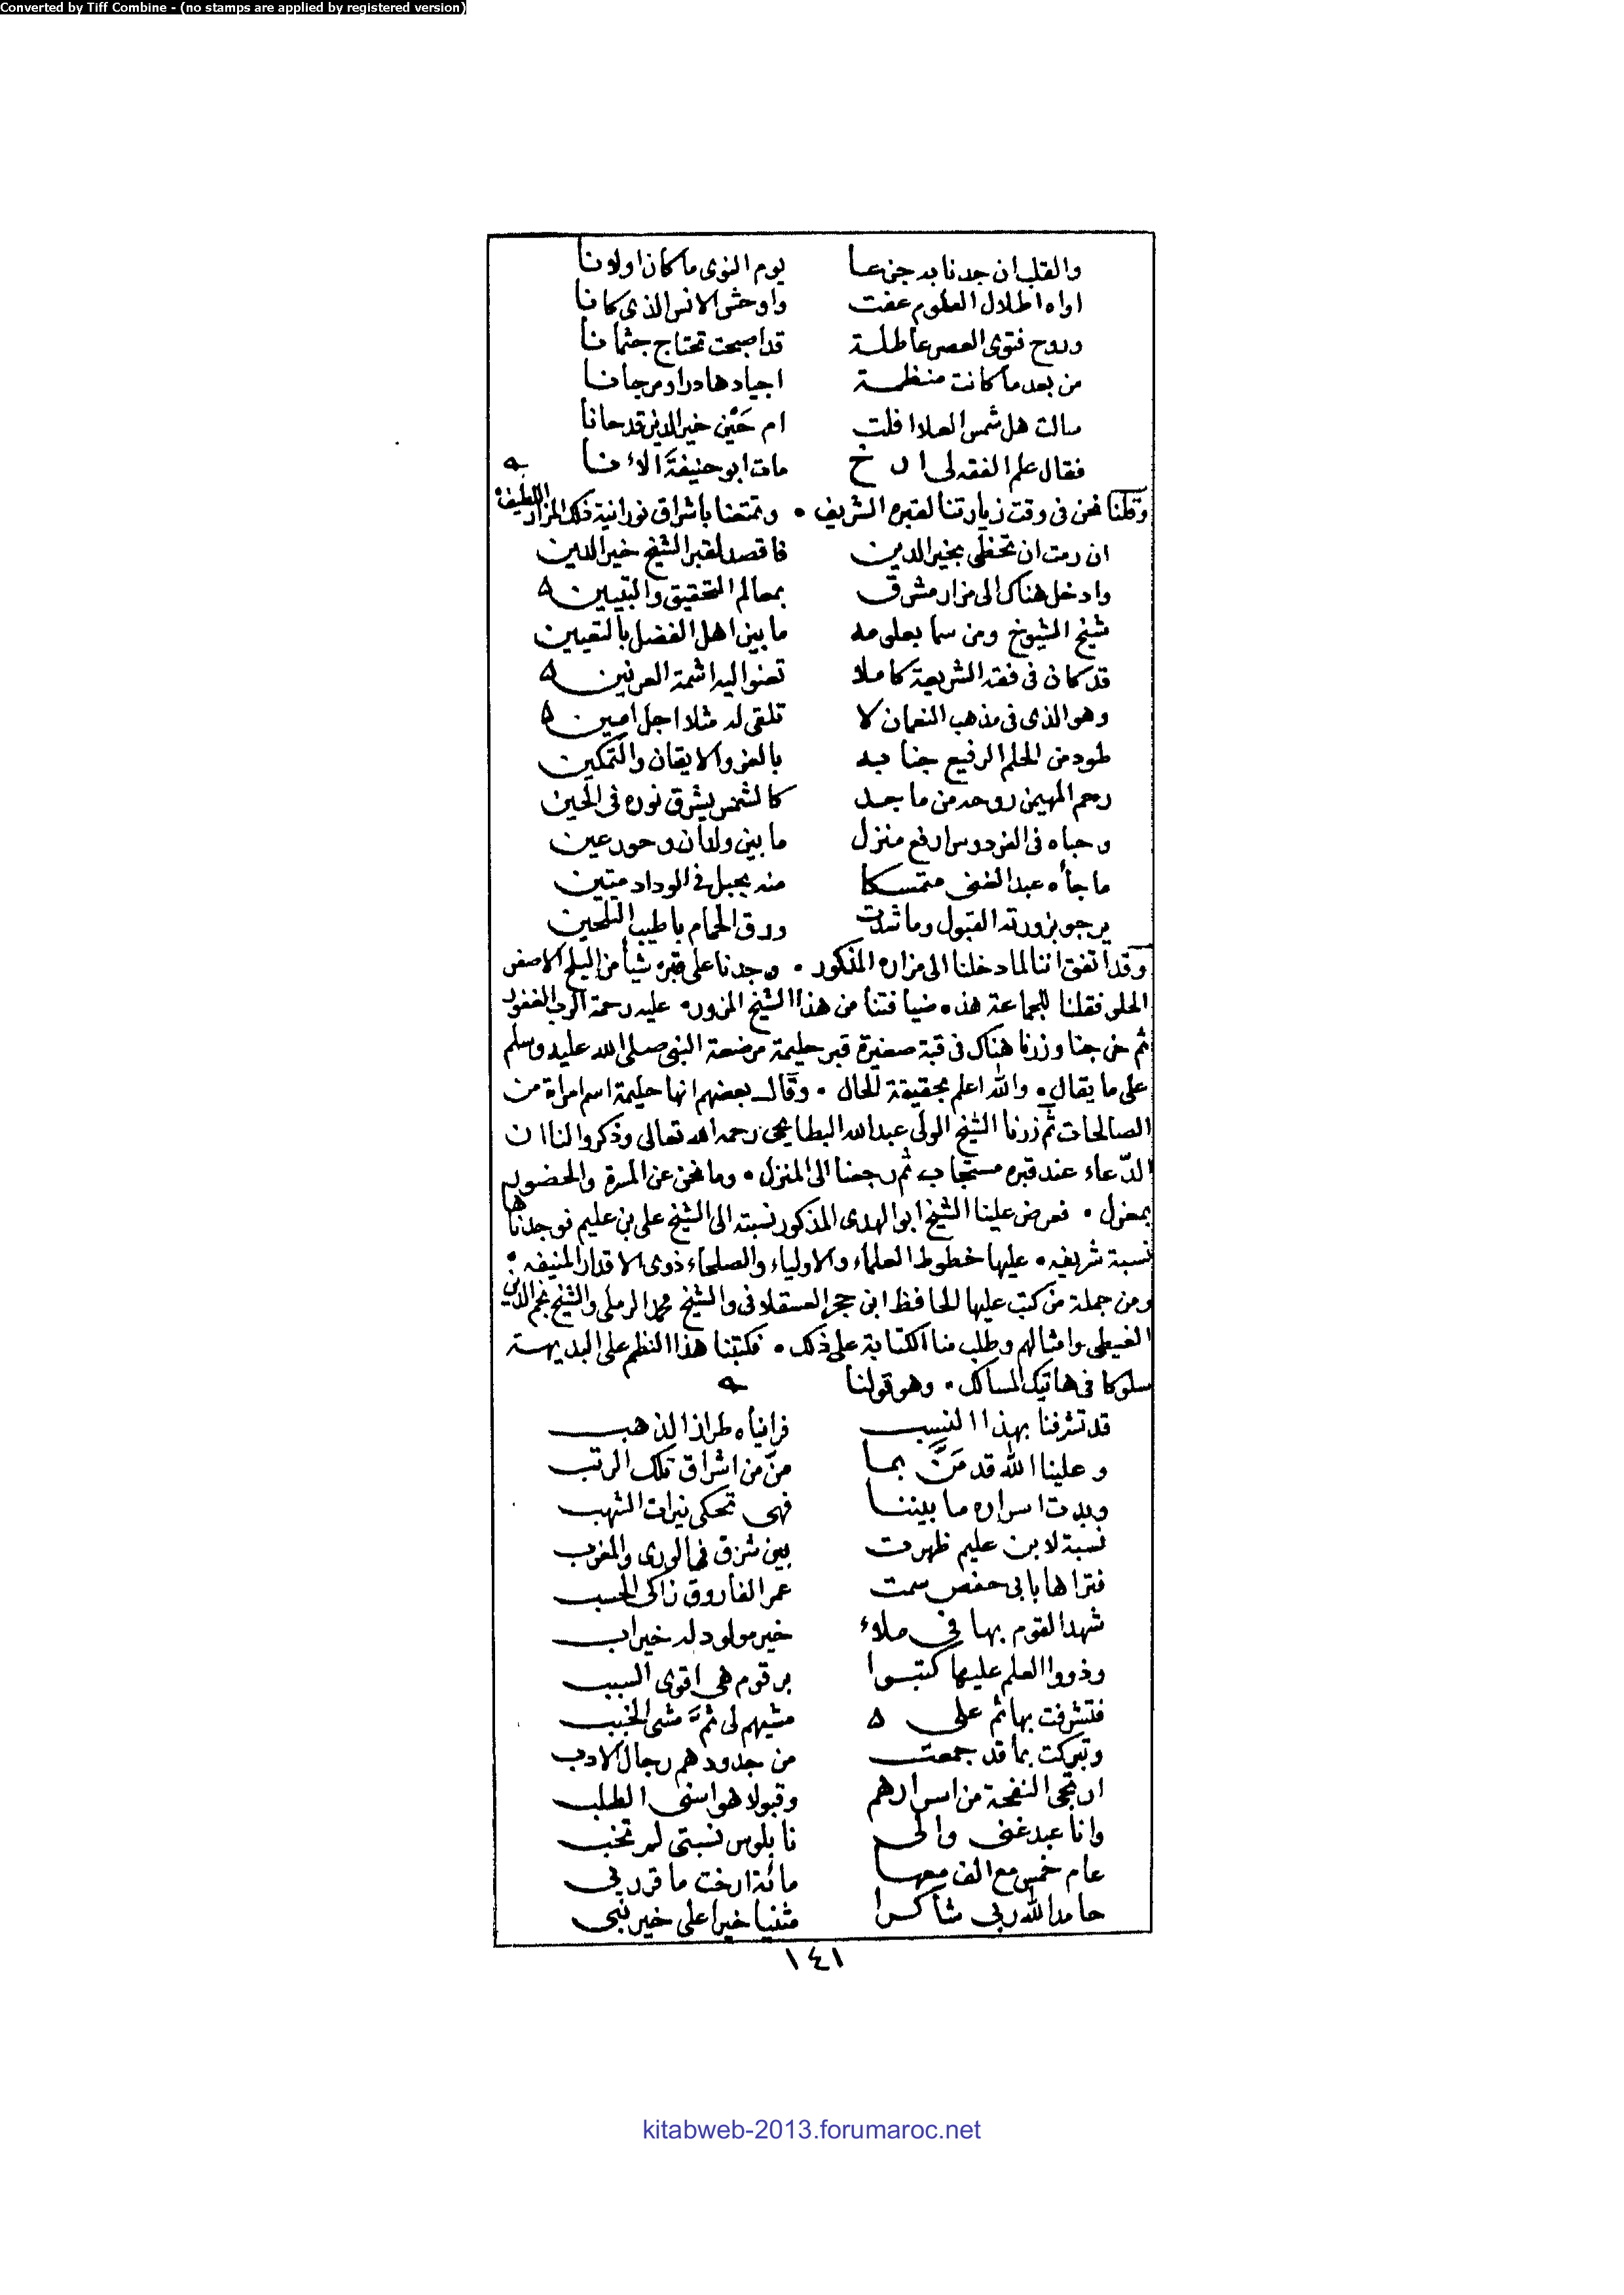 Converted by Tiff Combine - (no stamps are applied by registered version)
والقلب ان جدنا به جزعا يوم النوى ما كان اولانا
اواه اطلال العلوم عفت واوحش الانس الذى كانا
وروح فتوى العصر عاطلة قد اصبحت تحتاج جثمانا
من بعد ما كانت منظمة اجيادها درا ومرجانا
سالت هل شمس العلا افلت ام حَيْن خير الدين قد حانا
فقال علم الفقه لى ارخ مات ابو حنيفةَ الآنا
وقلنا نحن فى وقت زيارتنا لقبره الشريف • وتمتعنا باشراق نورانية ذلك المزار اللطيف
ان رمت ان تحظى بخير الدين فاقصد لقبر الشيخ خير الدين
وادخل هناك الى مزار مشرق بمعالم التحقيق والتبيين
شيخ الشيوخ ومن سما بعلومه ما بين اهل الفضل بالتعيين
قد كان فى فقه الشريعة كاملا تعنو اليه اشمة العرنين
وهو الذى فى مذهب النعمان لا تلقى له مثلا اجل امين
طود من الحلم الرفيع جنابه بالعز والايقان والتمكين
رحم المهيمن روحه من ماجد كالشمس يشرق نوره فى الحين
وحباه فى الفردوس ارفع منزل ما بين ولدان وحور عين
ما جأه عبد الغنى متمسكا منه بحبل فى الوداد متين
يرجو بزورته القبول وما شدت ورق الحمام باطيب التلحين
وقد اتفق اننا لما دخلنا الى مزاره المذكور • وجدنا على قبره شيأ من البلح الاصفر
الحلو فقلنا للجماعة هذه ضيافتنا من هذا الشيخ المزور • عليه رحمة الرب الغفور
ثم خرجنا وزرنا هناك فى قبة صغيرة قبر حليمة مرضعة النبى صلى الله عليه وسلم
على ما يقال • والله اعلم بحقيقة الحال • وقال بعضهم انها حليمة اسم امراة من
الصالحات ثم زرنا الشيخ الولى عبد الله البطايحى رحمه الله تعالى وذكروا لنا ان
الدّعاء عند قبره مستجاب ثم رجعنا الى المنزل • وما نحن عن المسرة والحضور
بمعزل • فعرض علينا الشيخ ابو الهدى المذكور نسبته الى الشيخ على بن عليم فوجدناها
نسبة شريفه • عليها خطوط العلماء والاولياء والصلحاء ذوى الاقدار المنيفه •
ومن جملة من كتب عليها الحافظ ابن حجر العسقلانى والشيخ محمد الرملى والشيخ نجم الدين
الغيطى وامثالهم وطلب منا الكتابة على ذلك • فكتبنا هذا النظم على البديهة
سلوكا فى هاتيك المسالك • وهو قولنا
قد تشرفنا بهذا النسب فراينأه طراز الذهب
وعلينا الله قد مَنَّ بما منّ من اشراق تلك الرتب
وبدت اسراره ما بيننا فهى تحكى نيرات الشهب
نسبة لابن عليم ظهرت بين شرق فى الورى والمغرب
فتراها بابى حفص سمت عمر الفاروق زاكى الحسب
شهد القوم بها فى ملاء خير مولود له خير اب
وذووا العلم عليها كتبوا برقوم هى اقوى السبب
فتشرفت بها ثم على مشيهم لى ثَمَّ مشى الخبب
وتبركت بما قد جمعت من جدود هم رجال الادب
ارتجى النفحة من اسرارهم وقبولا هو اسنى الطلب
وانا عبد غنى والى نابلوس نسبتى لم تخب
عام خمس مع الف معها مائة ارخت ما قرر بى
حامدا لله ربى شاكرا مثنيا خيرا على خير نبى
١٤١
kitabweb-2013.forumaroc.net